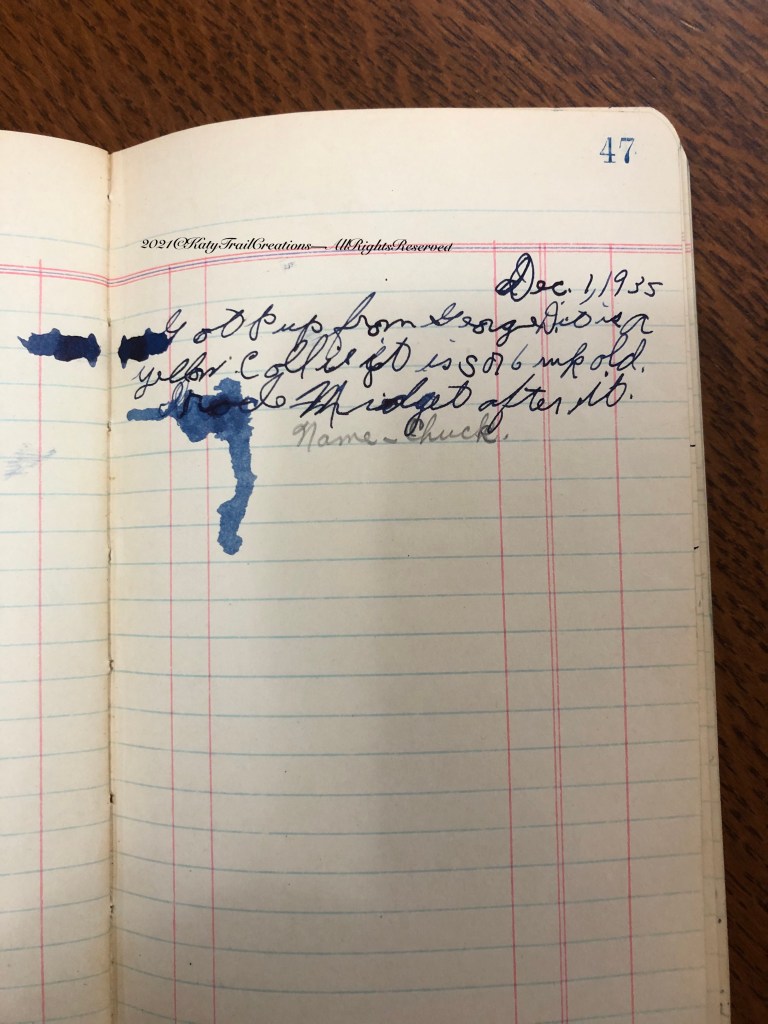 47
2021@KatyTrailCreations— AllRightsReserved
Dec. 1, 1935
Got Pup from George D. it is a
yellow Collie it is 5 or 6 wk old.
Rode Midget after it.
Name - Chuck.